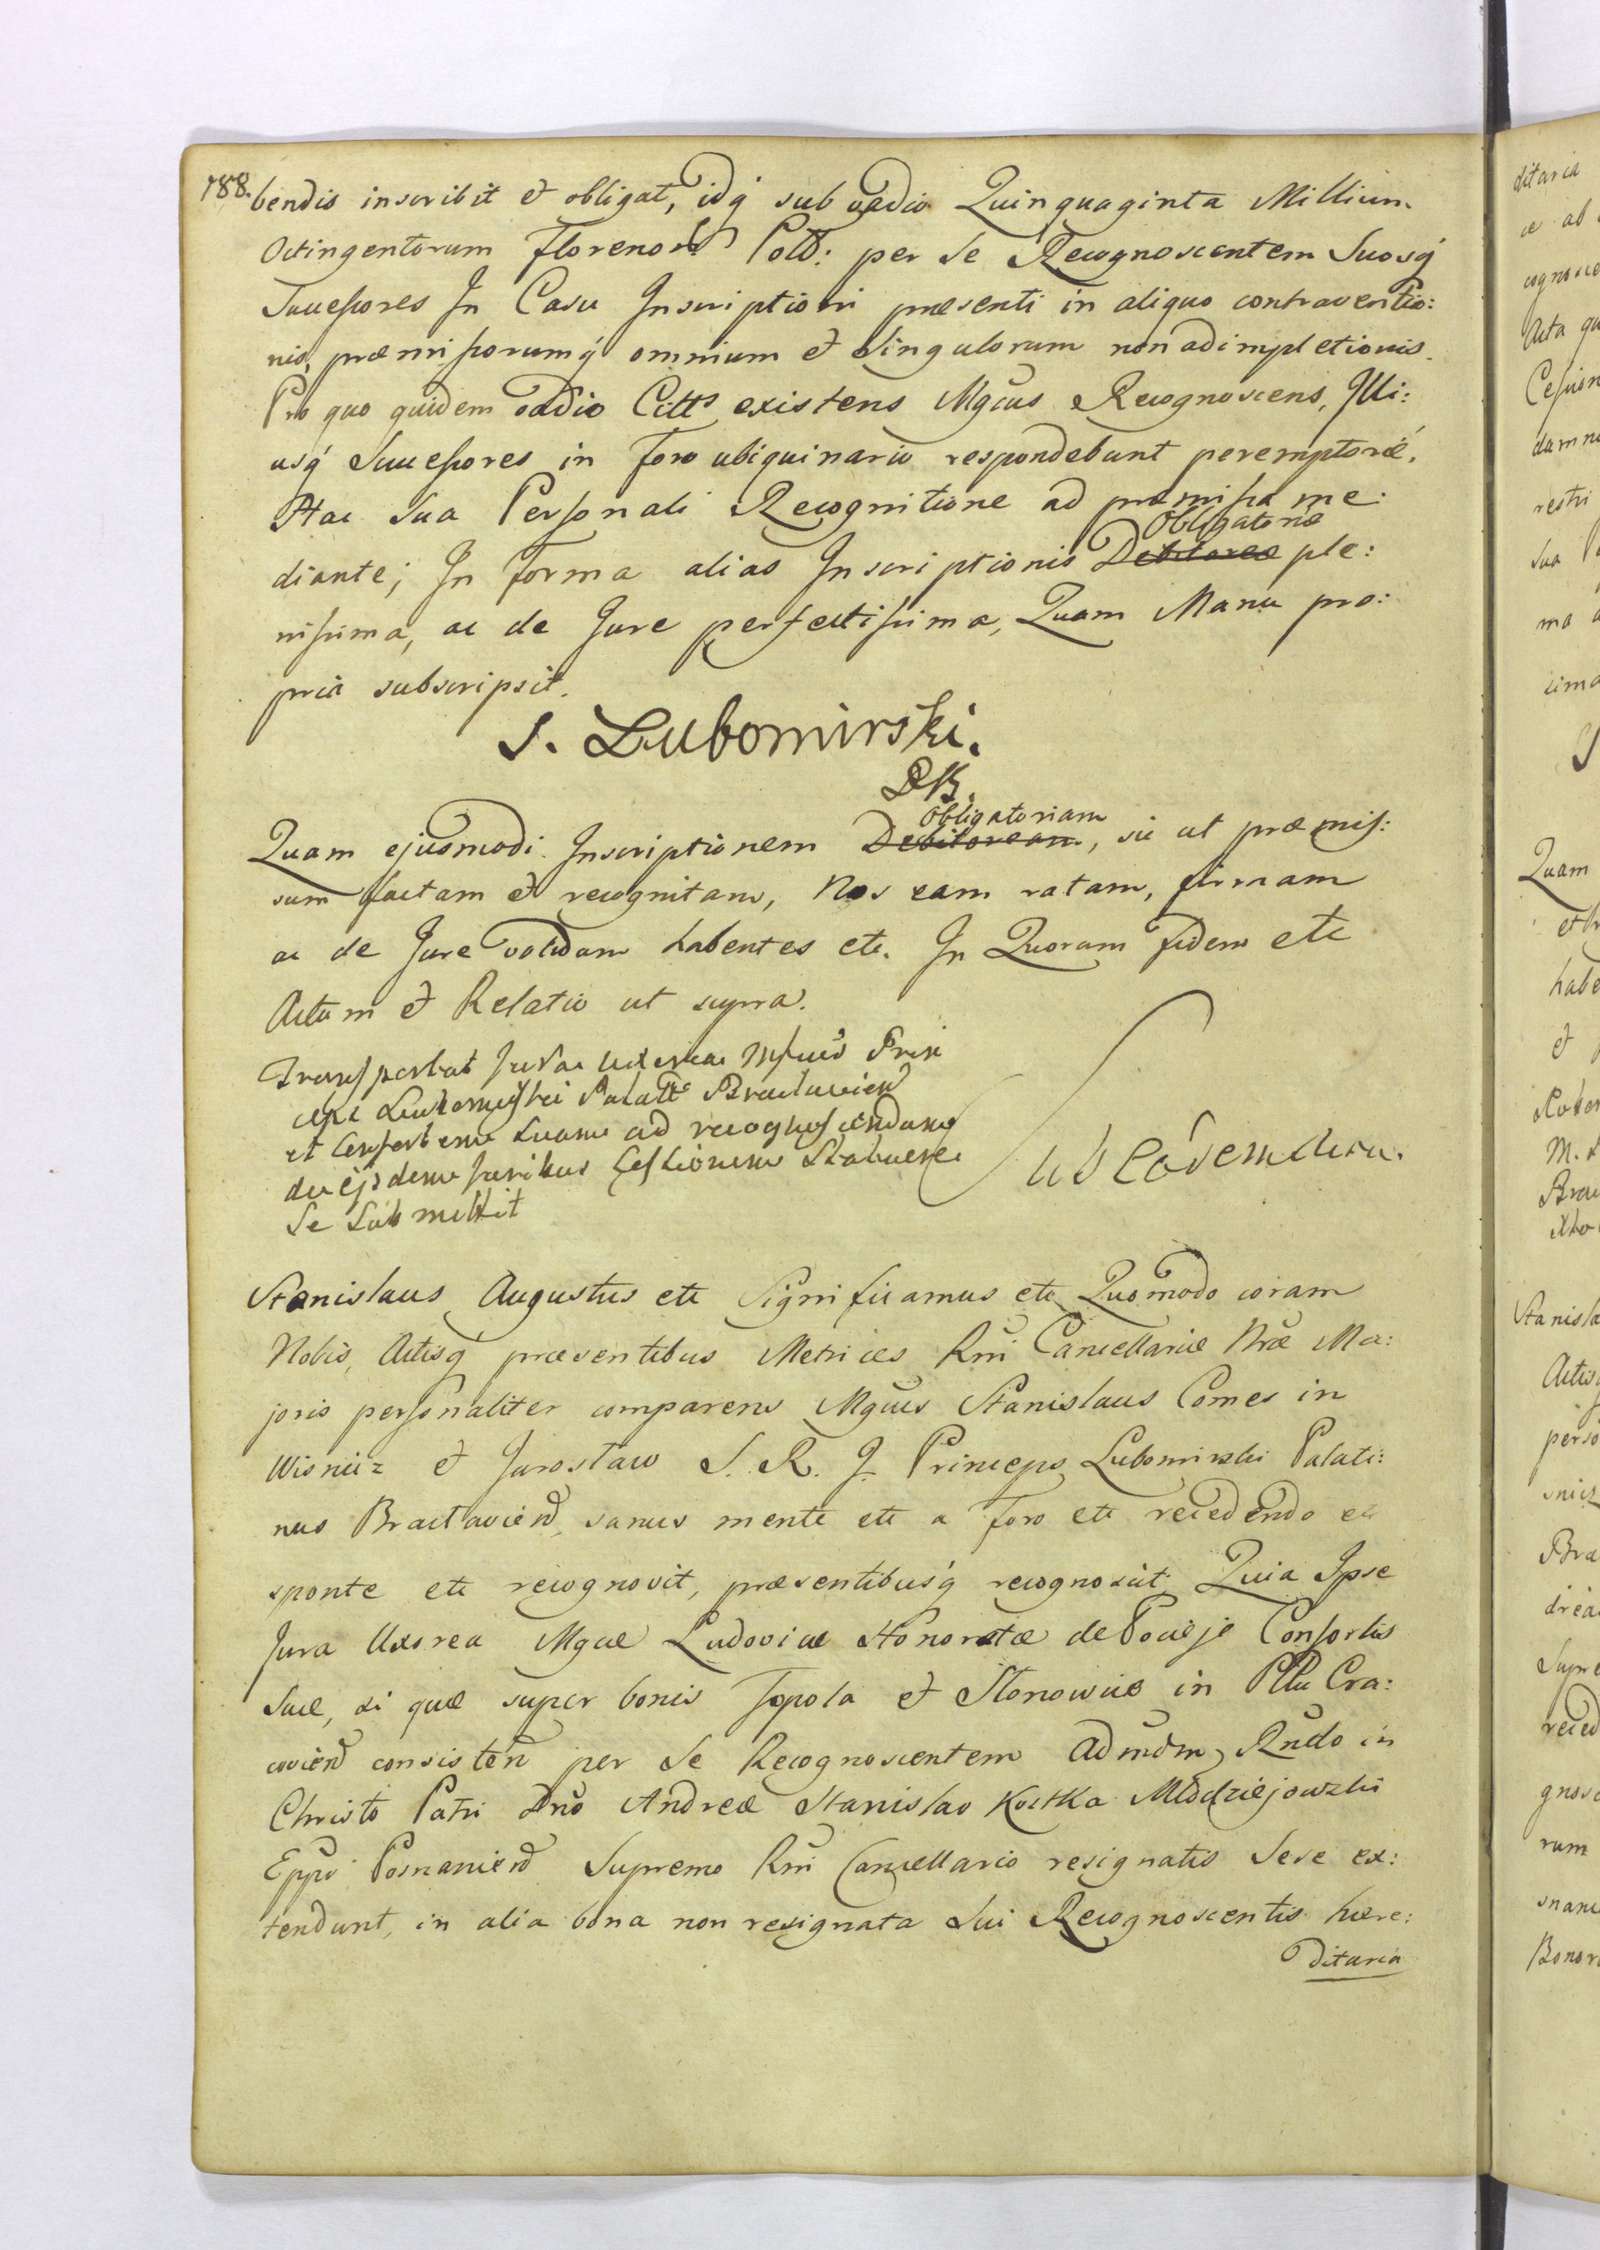 788.
bendis inscribit et obligat, idq́ sub vadio Quinquaginta Millium
Octingentorum Florenor̃ Poll: per Se Recognoscentem Suosq́
Successores In Casu Inscriptioni præsenti in aliquo contraventio:
nis, præmissorumq́ omnium et Singulorum non adimpletionis.
Pro quo quidem vadio Citt͠s existens Mgcus Recognoscens, Illi:
usq́ Successores in Foro ubiquinario respondebunt peremptorié.
Hac Sua Personali Recognitione ad præmissa me:
diante; In Forma alias Inscriptionis Debitoreæ Obligatoriæ ple:
nissima, ac de Jure perfectissima, Quam Manu pro:
pria subscripsit.
S. Lubomirski.
Quam ejusmodi Inscriptionem Debitoream Obligatoriam, sic ut præmis:
sum factam et recognitam, Nos eam ratam, firmam
ac de Jure validam habentes etc. In Quorum fidem etc
Actum et Relatio ut supra.
Transportat Jura uxorea Mgcus Prin
ceps Lubomirski Palatt Braclavien̄
et Consortem Suam ad recognoscendam
de ejsdem Juribus Cessionem
Se Submittit
Stanislaus Augustus etc Significamus etc Quomodo coram
Nobis, Actisq́ præsentibus Metrices Rñi Cancellariæ Nræ Ma:
joris personaliter comparens Mgcus Stanislaus Comes in
Wisnicz et Jarosław S. R. J. Princeps Lubomirski Palati:
nus Bracłavien̄, sanus mente etc a Foro etc recedendo etc
sponte etc recognovit, præsentibusq́ recognoscit, Quia Ipse
Jura Uxorea Mgcæ Ludovicæ Honoratæ de Pocieje Consortis
Suæ, si quæ super bonis Topola et Stonowice in Pttu Cra:
covien̄ consisteñ per Se Recognoscentem Admdm Rñdo in
Christo Patri Dño Andreæ Stanislao Kostka Młodziejowski
Eppo Posnanien̄ Supremo Rñi Cancellario resignatis Sese ex:
tendunt, in alia bona non resignata Sui Recognoscentis hære:
ditaria
ditaria
Quam
Stanisla